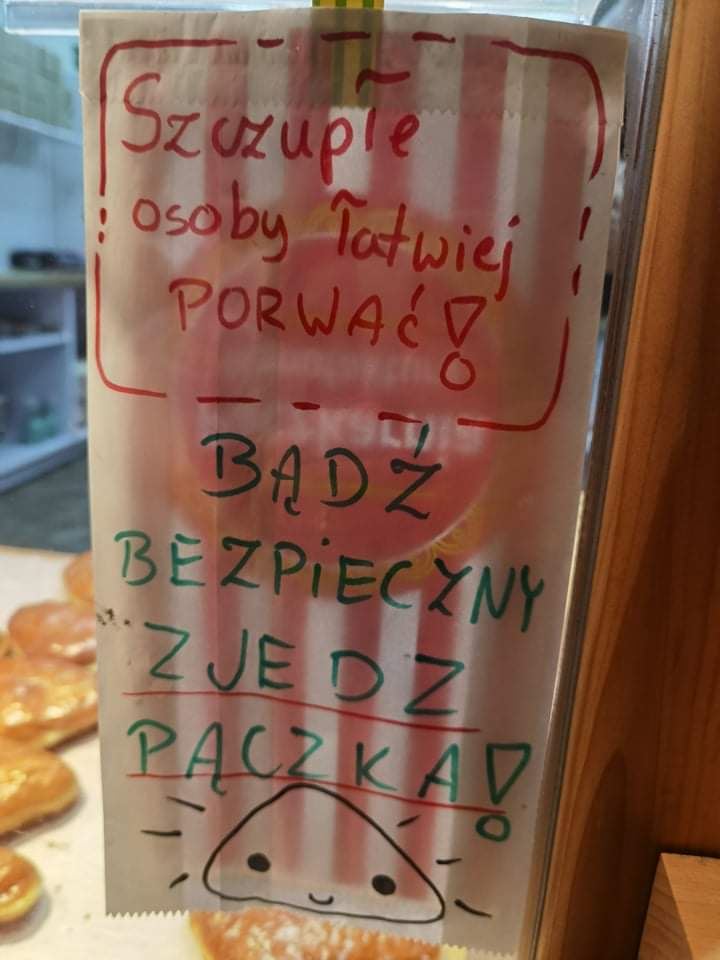 Szczupłe
osoby łatwiej
PORWAĆ!
BĄDŹ
BEZPIECZNY
ZJEDZ
PĄCZKA!